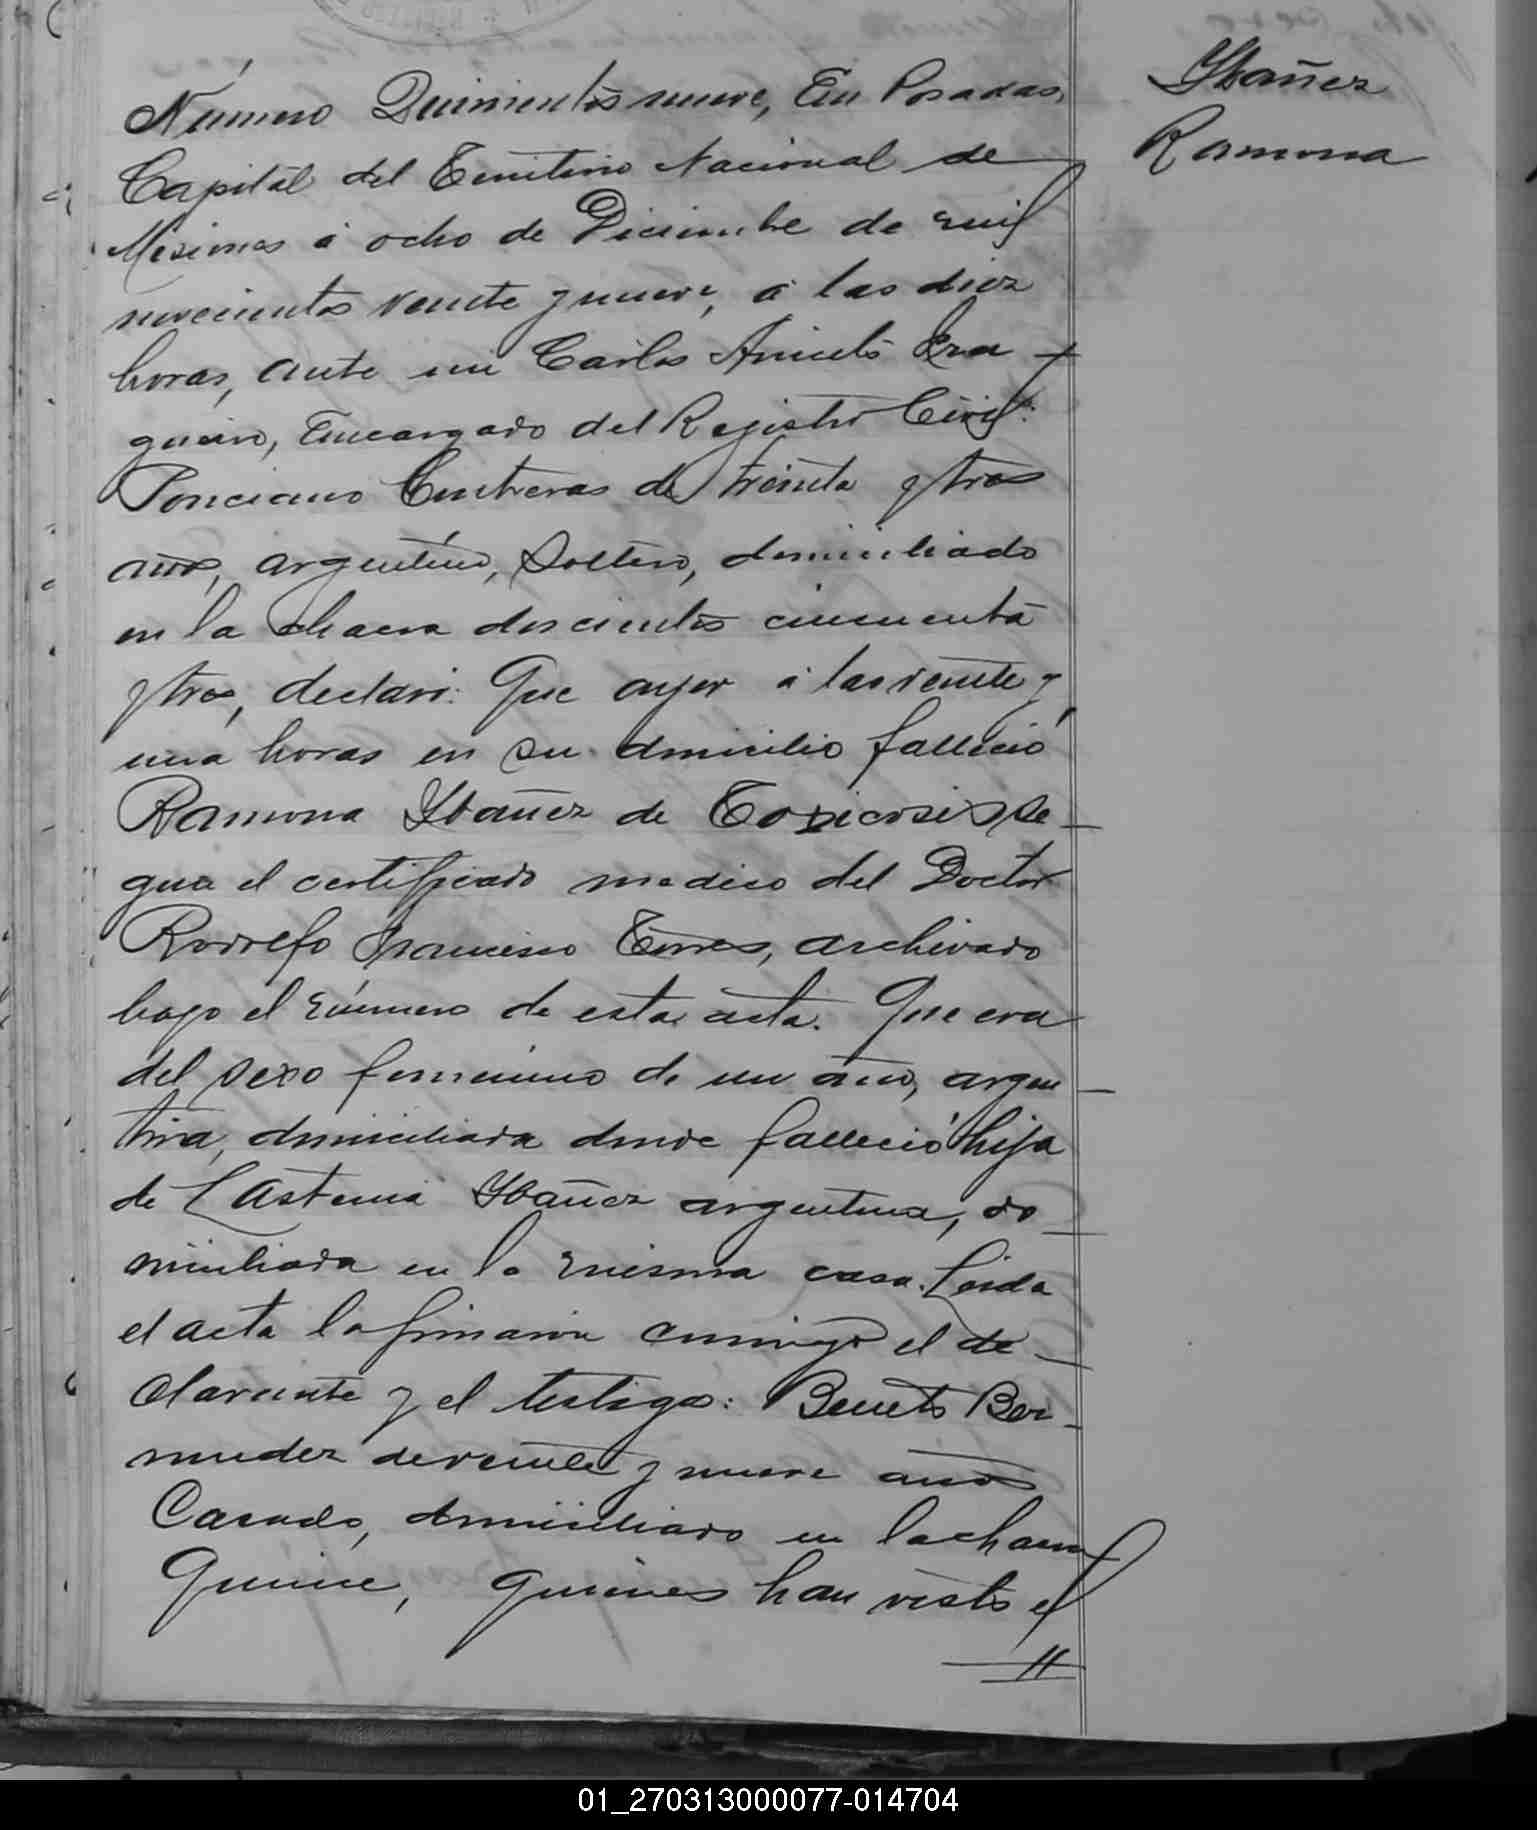 Ybañez
Ramona
Número Quinientos nueve, En Posadas,
Capital del Territorio Nacional de
Misiones á ocho de Diciembre de mil
novecientos veinte y nueve, á las diez
horas, ante mi Carlos Aniceto
Encargado del Registro Civil:
Ponciano Contreras de treinta y tres
años, argentino, soltero, domiciliado
en la chacra doscientos cincuenta
y tres, declaró: Que ayer á las veinte y
una horas en su domicilio falleció
Ramona Ybañez de Toxicosis se-
gun el certificado medico del Doctor
Rodolfo Francisco Torres, archivado
bajo el número de esta acta. Que era
del sexo femenino de un año, argen
tina, domiciliada donde falleció hija
de Lastenia Ybañez argentina, do
miciliada en la misma casa. Leida
el acta la firmaron conmigo el de-
clarante y el testigo: Benito Ber-
mudez de veinte y nueve años
Casado, domiciliado en la chacra
Quince, quienes han visto el
//
01_270313000077-014704